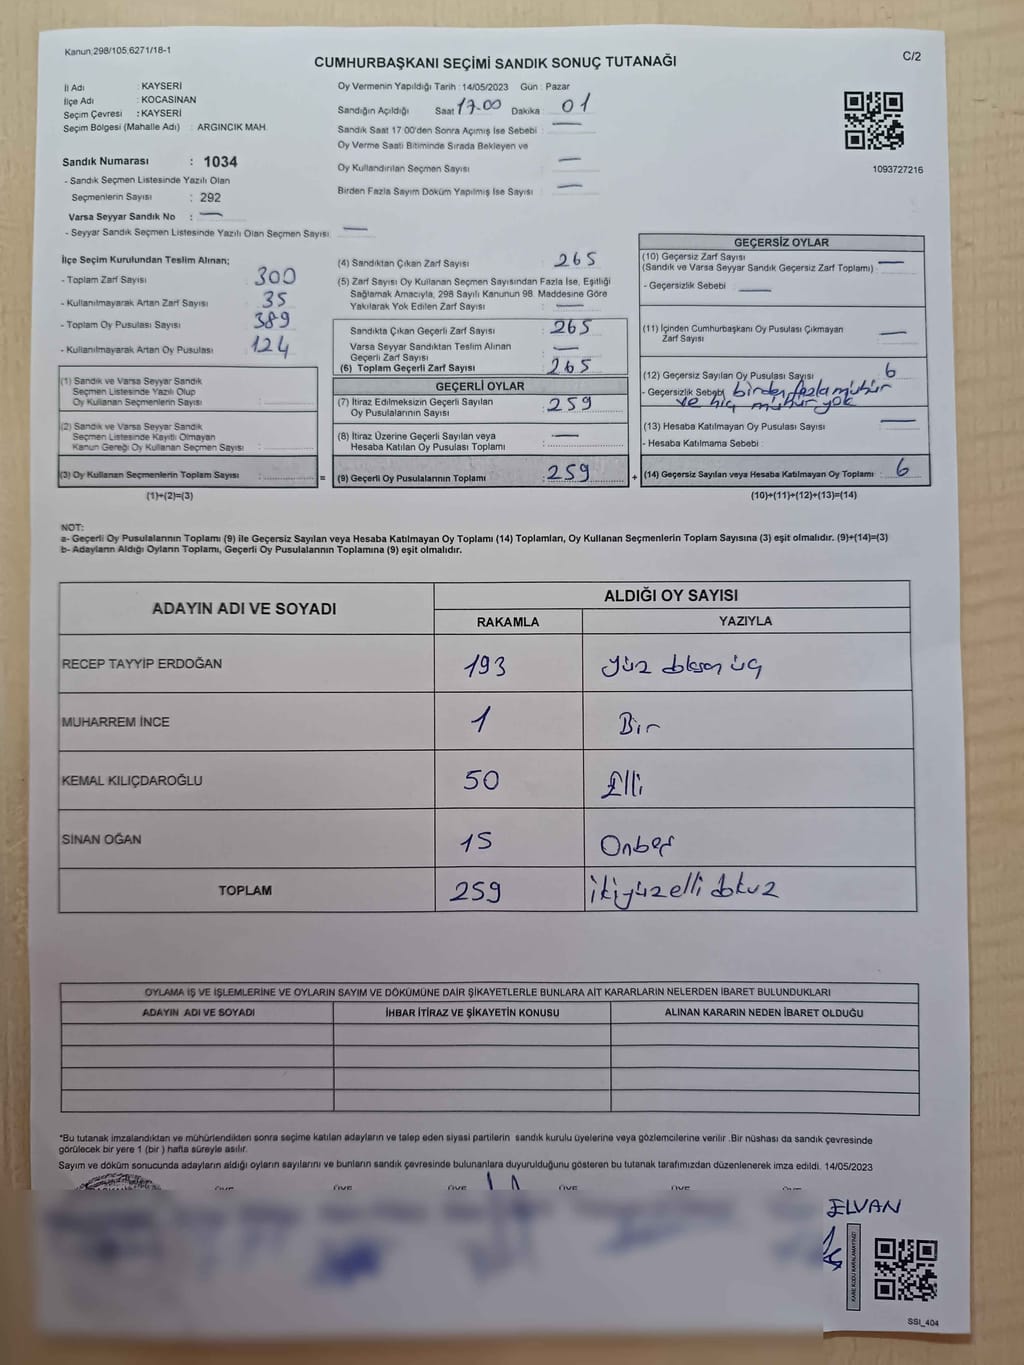 Kanun.298/105,6271/18-1
CUMHURBAŞKANI SEÇİMİ SANDIK SONUÇ TUTANAĞI
C/2
İl Adı : KAYSERİ
İlçe Adı : KOCASİNAN
Seçim Çevresi : KAYSERİ
Seçim Bölgesi (Mahalle Adı) : ARGINCIK MAH.
Sandık Numarası : 1034
- Sandık Seçmen Listesinde Yazılı Olan
Seçmenlerin Sayısı : 292
Varsa Seyyar Sandık No : —
- Seyyar Sandık Seçmen Listesinde Yazılı Olan Seçmen Sayısı: —
Oy Vermenin Yapıldığı Tarih : 14/05/2023 Gün : Pazar
Sandığın Açıldığı Saat 17.00 Dakika 01
Sandık Saat 17.00'den Sonra Açımış İse Sebebi : —
Oy Verme Saati Bitiminde Sırada Bekleyen ve
Oy Kullandırılan Seçmen Sayısı : —
Birden Fazla Sayım Döküm Yapılmış İse Sayısı : —
1093727216
İlçe Seçim Kurulundan Teslim Alınan;
- Toplam Zarf Sayısı : 300
- Kullanılmayarak Artan Zarf Sayısı : 35
- Toplam Oy Pusulası Sayısı : 389
- Kullanılmayarak Artan Oy Pusulası : 124
(1) Sandık ve Varsa Seyyar Sandık
Seçmen Listesinde Yazılı Olup
Oy Kullanan Seçmenlerin Sayısı :
(2) Sandık ve Varsa Seyyar Sandık
Seçmen Listesinde Kayıtlı Olmayan
Kanun Gereği Oy Kullanan Seçmen Sayısı :
(3) Oy Kullanan Seçmenlerin Toplam Sayısı :
(1)+(2)=(3)
(4) Sandıktan Çıkan Zarf Sayısı : 265
(5) Zarf Sayısı Oy Kullanan Seçmen Sayısından Fazla İse, Eşitliği
Sağlamak Amacıyla, 298 Sayılı Kanunun 98. Maddesine Göre
Yakılarak Yok Edilen Zarf Sayısı : —
Sandıkta Çıkan Geçerli Zarf Sayısı : 265
Varsa Seyyar Sandıktan Teslim Alınan
Geçerli Zarf Sayısı : —
(6) Toplam Geçerli Zarf Sayısı : 265
GEÇERLİ OYLAR
(7) İtiraz Edilmeksizin Geçerli Sayılan
Oy Pusulalarının Sayısı : 259
(8) İtiraz Üzerine Geçerli Sayılan veya
Hesaba Katılan Oy Pusulası Toplamı : —
= (9) Geçerli Oy Pusulalarının Toplamı : 259
GEÇERSİZ OYLAR
(10) Geçersiz Zarf Sayısı
(Sandık ve Varsa Seyyar Sandık Geçersiz Zarf Toplamı) : —
- Geçersizlik Sebebi : —
(11) İçinden Cumhurbaşkanı Oy Pusulası Çıkmayan
Zarf Sayısı : —
(12) Geçersiz Sayılan Oy Pusulası Sayısı : 6
- Geçersizlik Sebebi birden fazla mühür
ve hiç mühür yok
(13) Hesaba Katılmayan Oy Pusulası Sayısı : —
- Hesaba Katılmama Sebebi :
+ (14) Geçersiz Sayılan veya Hesaba Katılmayan Oy Toplamı : 6
(10)+(11)+(12)+(13)=(14)
NOT:
a- Geçerli Oy Pusulalarının Toplamı (9) ile Geçersiz Sayılan veya Hesaba Katılmayan Oy Toplamı (14) Toplamları, Oy Kullanan Seçmenlerin Toplam Sayısına (3) eşit olmalıdır. (9)+(14)=(3)
b- Adayların Aldığı Oyların Toplamı, Geçerli Oy Pusulalarının Toplamına (9) eşit olmalıdır.
ADAYIN ADI VE SOYADI
ALDIĞI OY SAYISI
RAKAMLA YAZIYLA
RECEP TAYYİP ERDOĞAN 193 yüz doksan üç
MUHARREM İNCE 1 Bir
KEMAL KILIÇDAROĞLU 50 Elli
SİNAN OĞAN 15 Onbeş
TOPLAM 259 ikiyüzelli dokuz
OYLAMA İŞ VE İŞLEMLERİNE VE OYLARIN SAYIM VE DÖKÜMÜNE DAİR ŞİKAYETLERLE BUNLARA AİT KARARLARIN NELERDEN İBARET BULUNDUKLARI
ADAYIN ADI VE SOYADI İHBAR İTİRAZ VE ŞİKAYETİN KONUSU ALINAN KARARIN NEDEN İBARET OLDUĞU
*Bu tutanak imzalandıktan ve mühürlendikten sonra seçime katılan adayların ve talep eden siyasi partilerin sandık kurulu üyelerine veya gözlemcilerine verilir .Bir nüshası da sandık çevresinde
görülecek bir yere 1 (bir ) hafta süreyle asılır.
Sayım ve döküm sonucunda adayların aldığı oyların sayılarını ve bunların sandık çevresinde bulunanlara duyurulduğunu gösteren bu tutanak tarafımızdan düzenlenerek imza edildi. 14/05/2023
ELVAN
KARE KODU KARALAMAYINIZ!
SSI_404